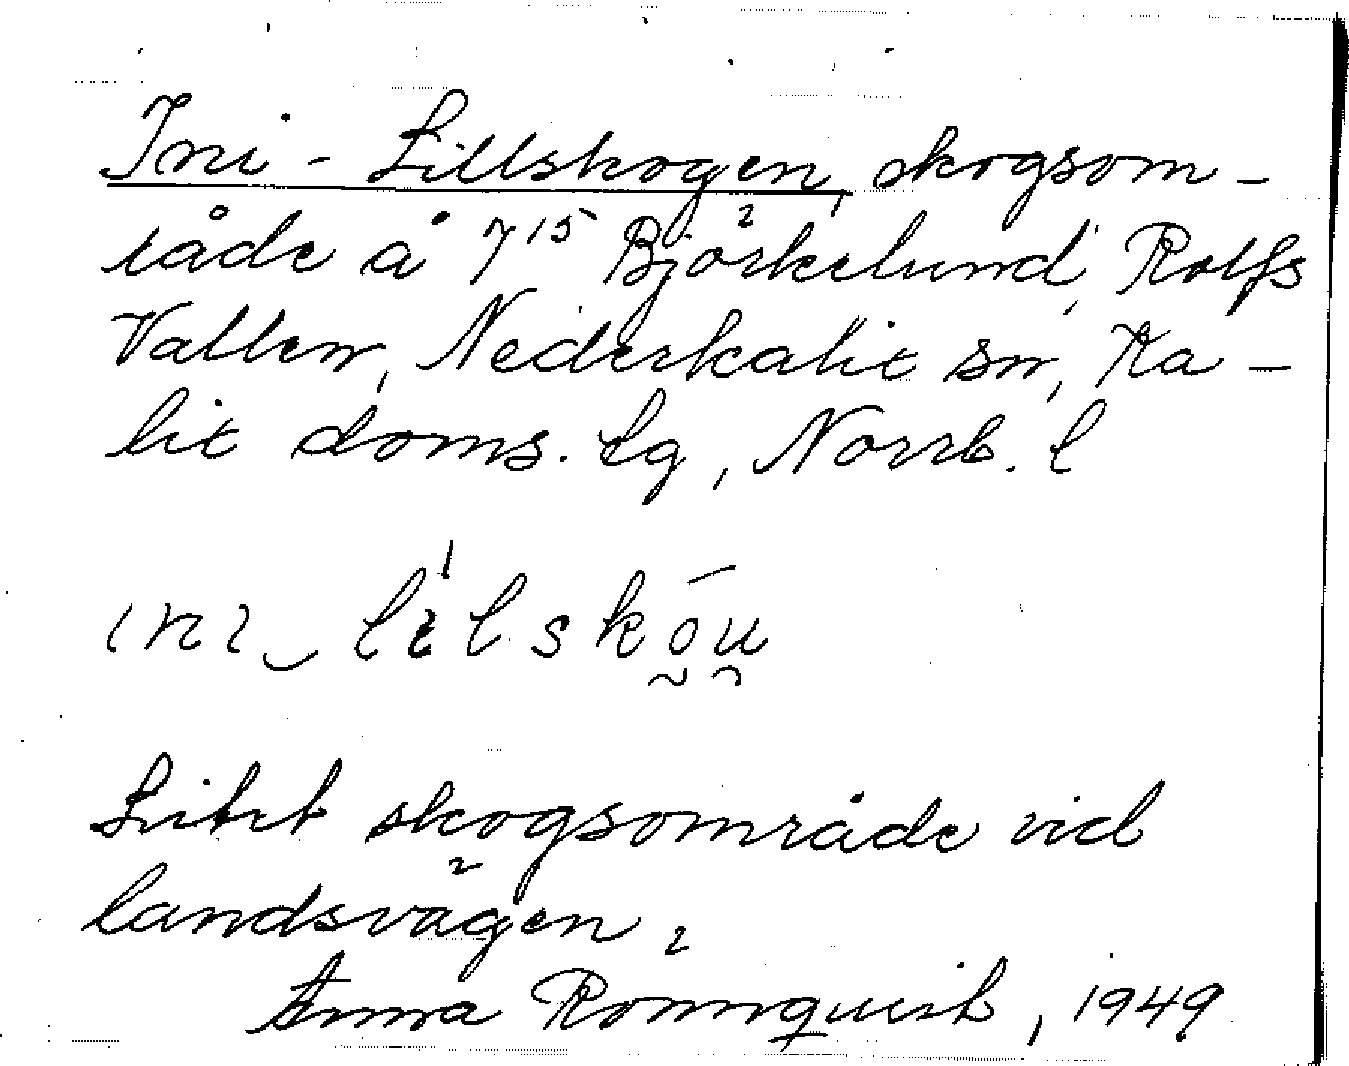 Ini-Lillskogen, skogsom-
råde å 7¹⁵ Björkelund, Rolfs
Vallen, Nederkalix sn, Ka-
lix doms. tg, Norrb. l
ini‿lìlskōu
Litet skogsområde vid
landsvägen.
Anna Rönnquist, 1949